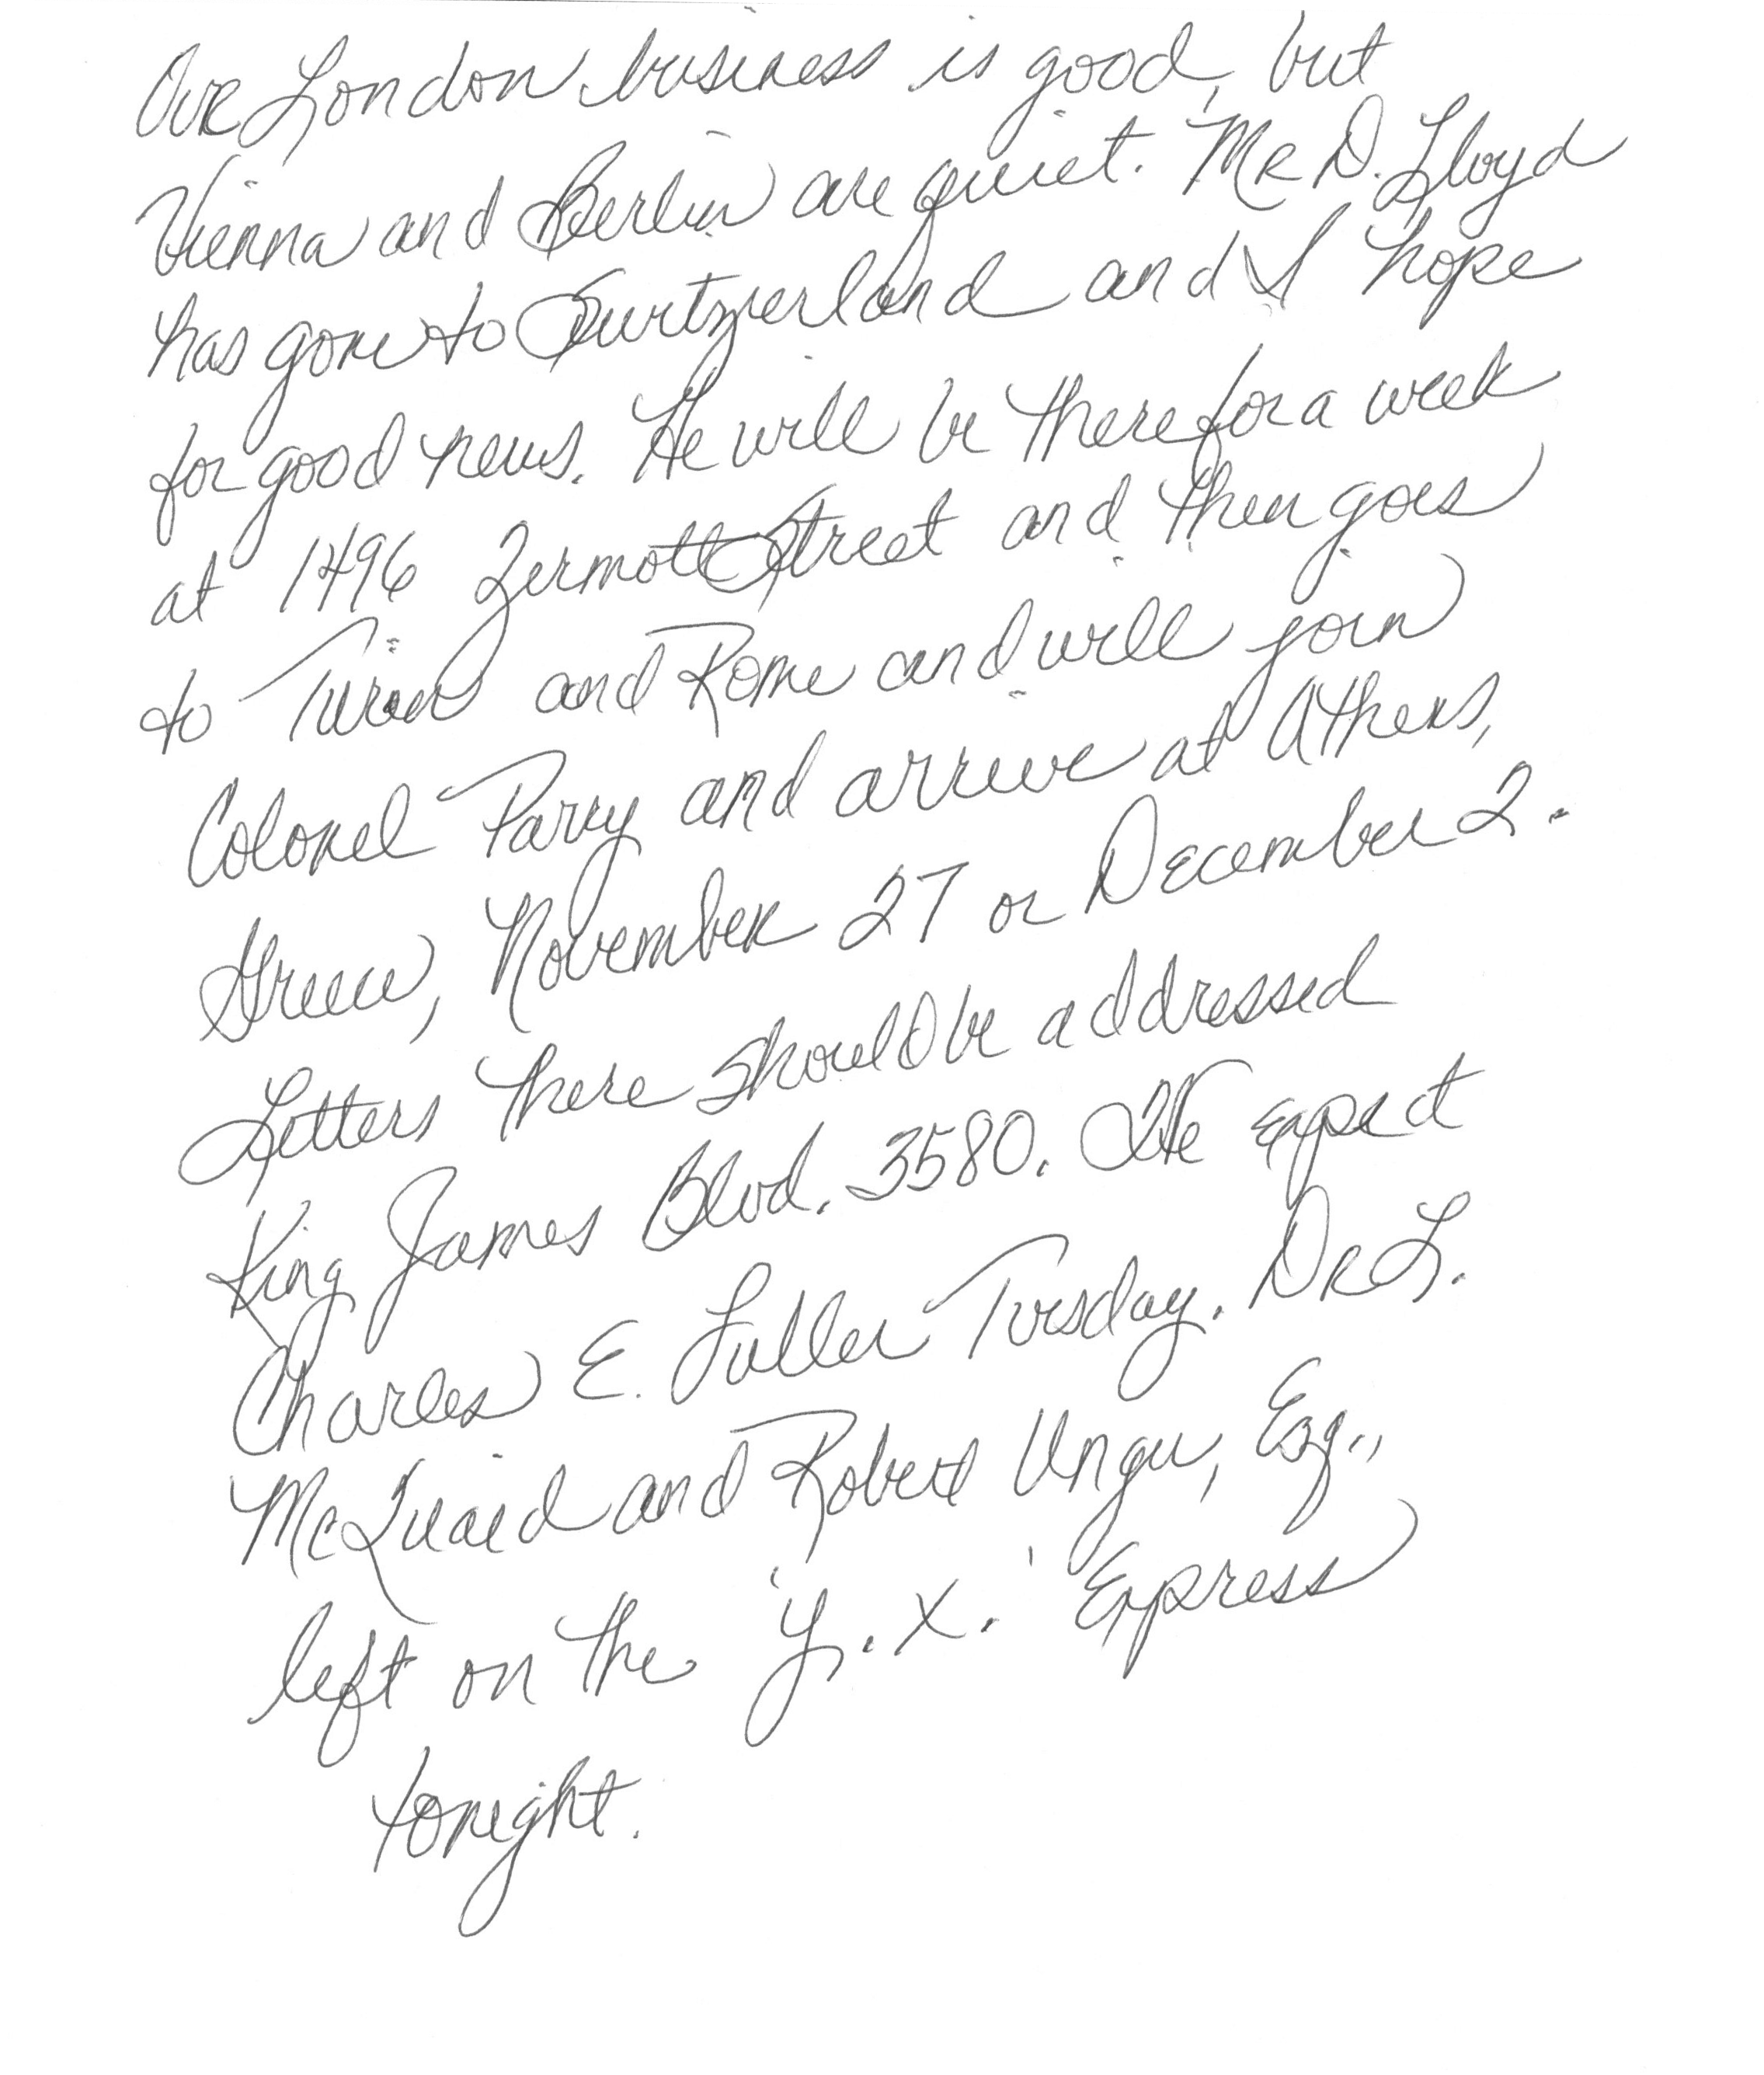 Our London business is good, but
Vienna and Berlin are quiet. Mr D. Lloyd
has gone to Switzerland and I hope
for good news. He will be there for a week
at 1496 Zermott Street and then goes
to Turin and Rome and will join
Colonel Parry and arrive at Athens,
Greece, November 27 or December 2.
Letters there should be addressed
King James Blvd. 3580. We expect
Charles E. Fuller Tuesday. Dr L.
McQuaid and Robert Unger, Esq.,
left on the 'Y. X.' Express
tonight.